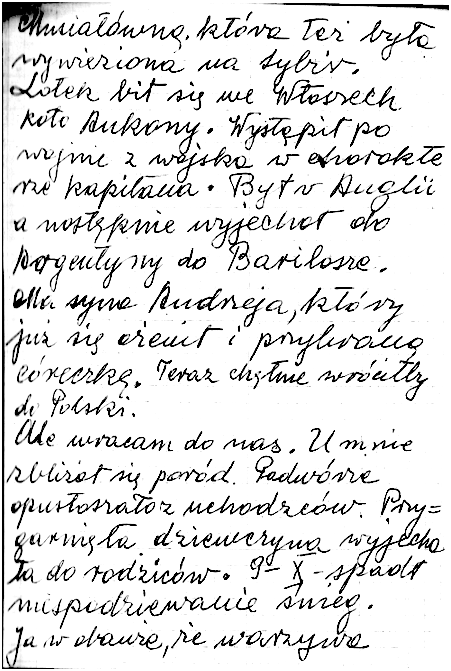 Chmiałówną, która też była
wywieziona na Sybir.
Lolek bił się we Włoszech
koło Ankony. Wystąpił po
wojnie z wojska w charakte
rze kapitana. Był w Anglii
a następnie wyjechał do
Argentyny do Barilosze.
Ma syna Andrzeja, który
już się ożenił i przybraną
córeczkę. Teraz chętnie wróciłby
do Polski.
Ale wracam do nas. U mnie
zbliżał się poród. Podwórze
opustoszało z uchodźców. Przy=
garnięta dziewczyna wyjecha
ła do rodziców. 9-X-spadł
niespodziewanie śnieg.
Ja w obawie, że warzywa